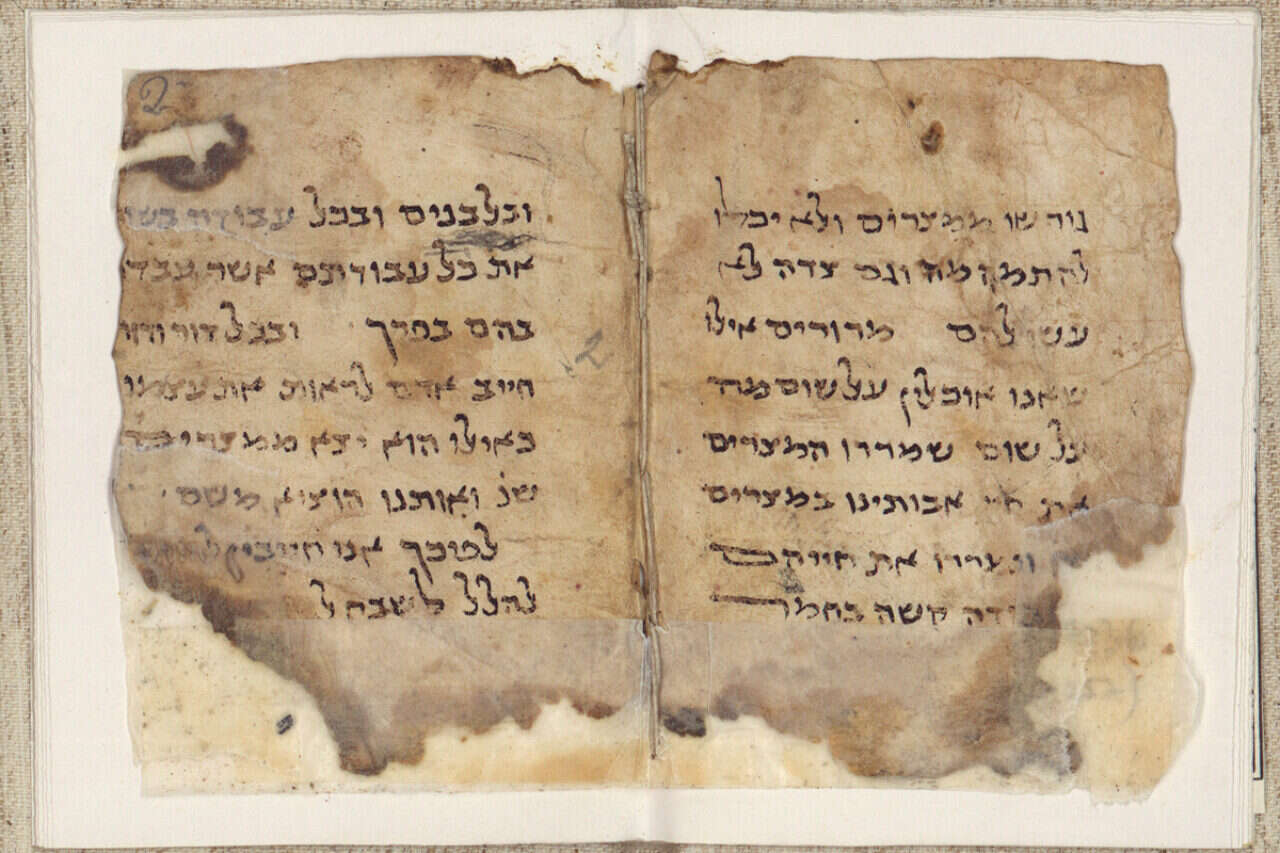 גורשו ממצרים ולא יכלו
להתמהמה וגם צדה לא
עשו להם מרורים אילו
שאנו אוכלין על שום מה
על שום שמררו המצרים
את חיי אבותינו במצרים
וימררו את חייהם
קשה בחמר
ובלבנים ובכל עבודה
את כל עבודתם אשר עבדו
בהם בפרך ובכל דור ודור
חייב אדם לראות את עצמו
כאילו הוא יצא ממצרים
שנ ואותנו הוציא משם
לפיכך אנו חייבין
להלל לשבח ל
2